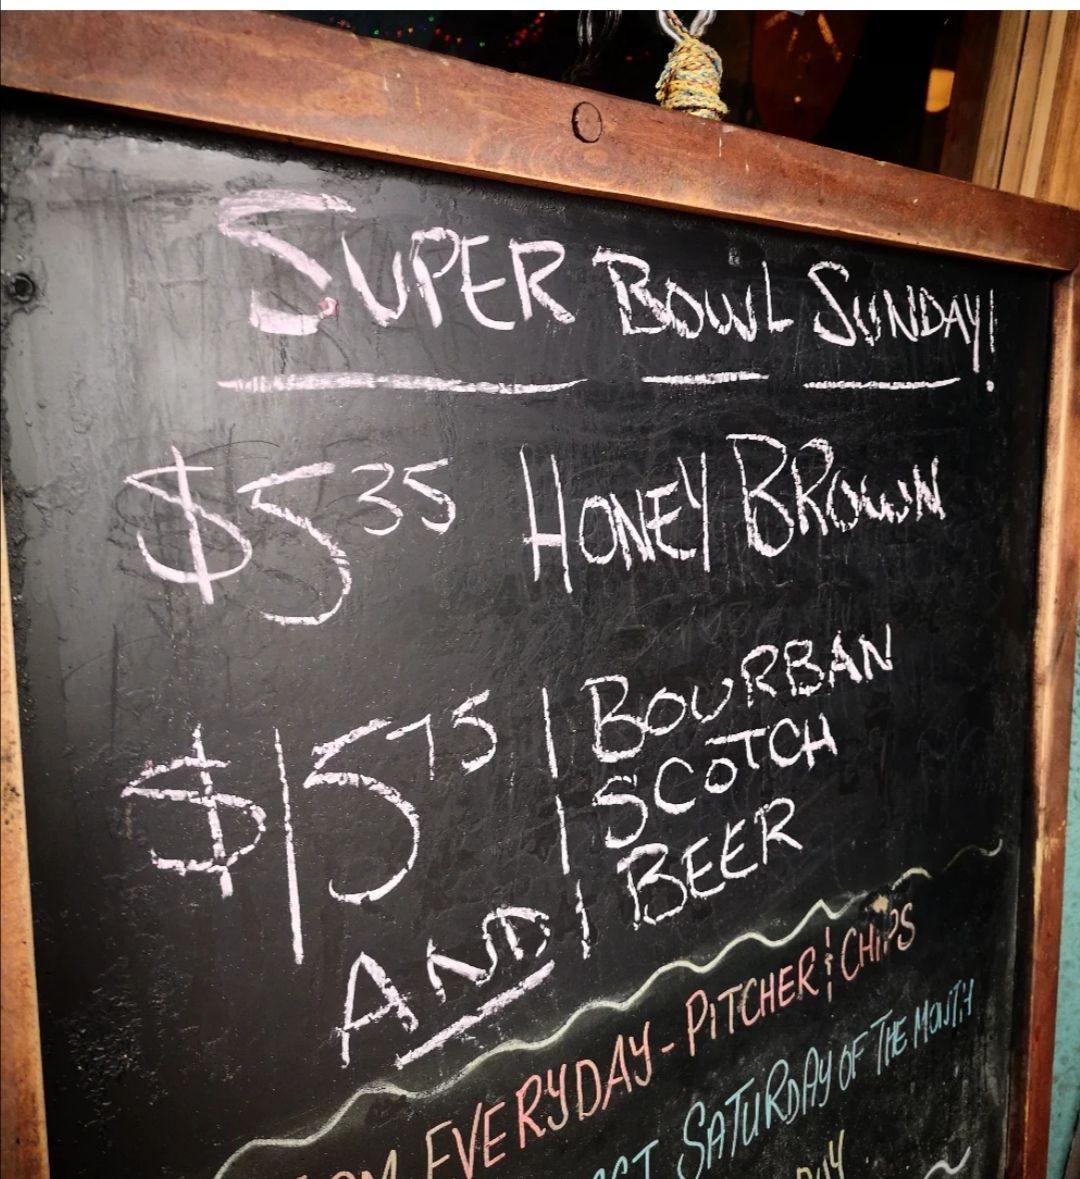 SUPER BOWL SUNDAY!
$5 35 HONEY BROWN
$15 75 1 BOURBAN
1 SCOTCH
AND 1 BEER
EVERYDAY - PITCHER & CHIPS
SATURDAY OF THE MONTH